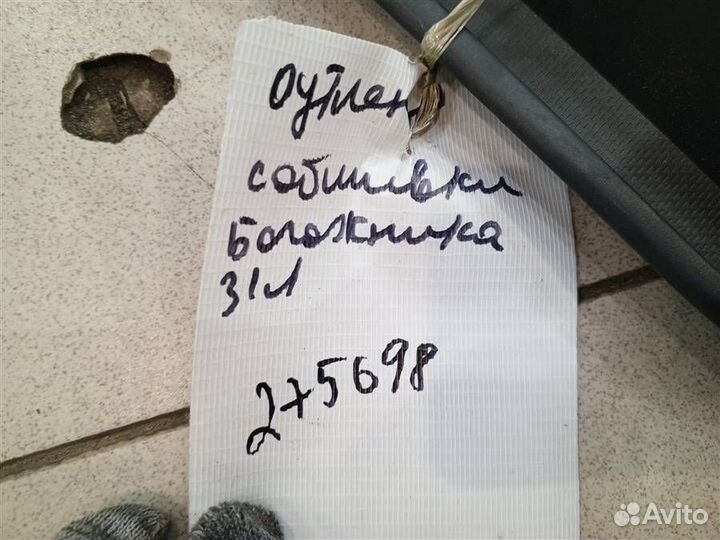 Оутлен
собшивки
Богожника
З/Л
275698
Avito